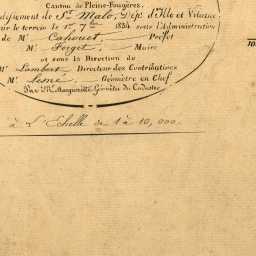 Canton de Pleine-Fougères,
dissement de St. Malo, Dépt. d'Ille et Vilaine
sur le terrein le 1er 7bre 1834 sous l'Administration
de Mr. Cahouet Préfet
Mr. Forget, Maire
et sous la Direction de
Mr. Lambert Directeur des Contributions
Mr. Lesné Géomètre en Chef
Par Mr. Margueritte Géomètre du Cadastre
à L'Echelle de 1 à 10,000.